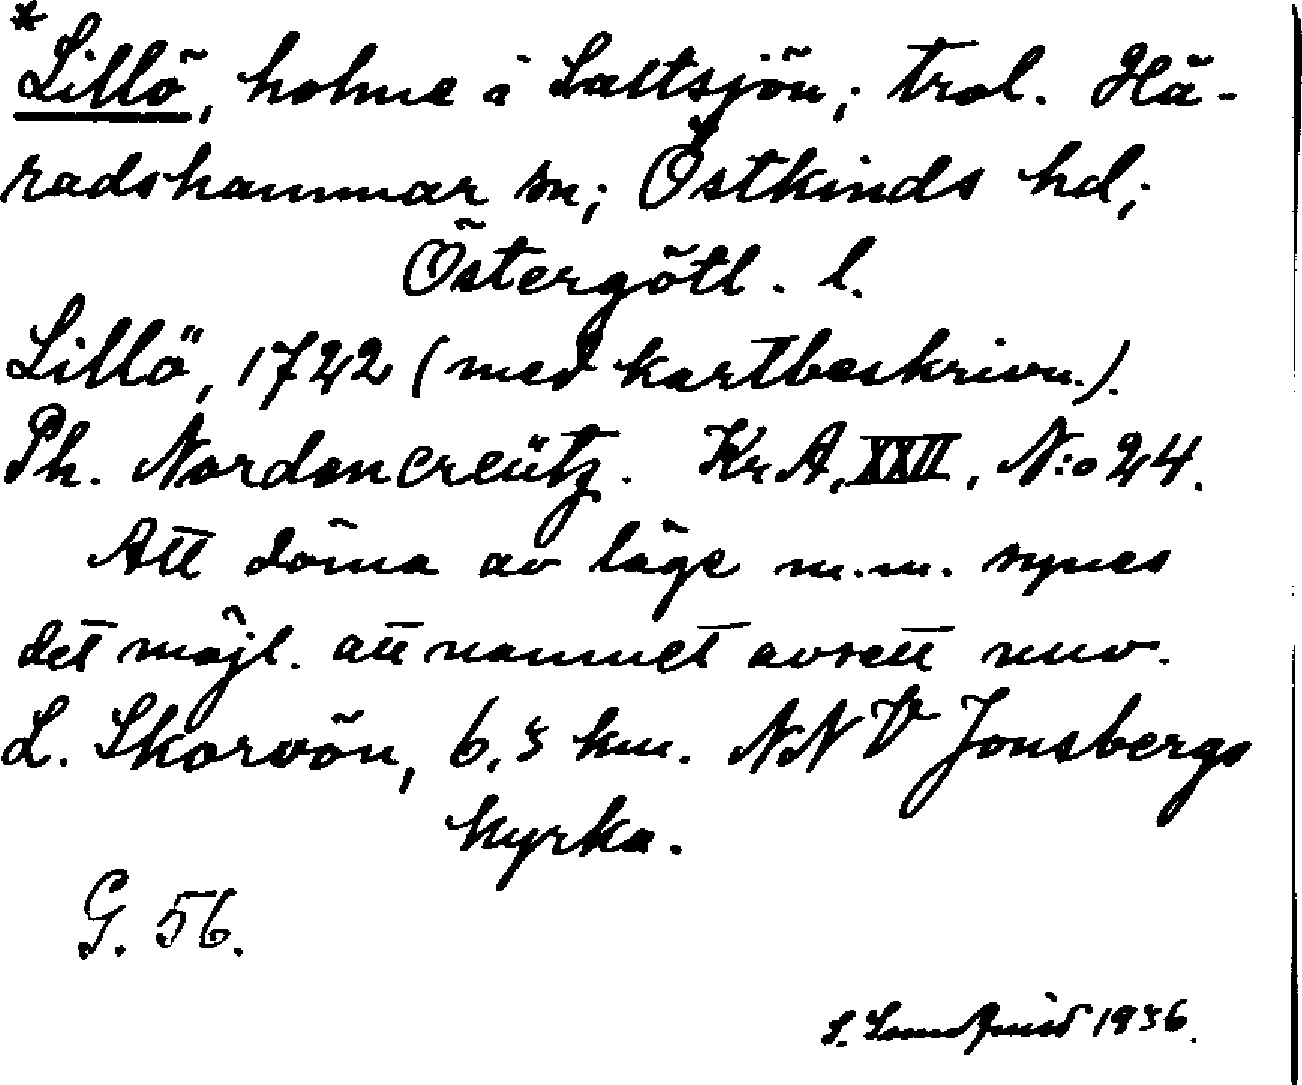 *Lillö, holme i Saltsjön; trol. Hä-
radshammar sn; Östkinds hd;
Östergötl. l.
Lillö, 1722 (med kartbeskrivn.).
Ph. Nordencreütz. Kr. A, XXII, N:o 24.
Att döma av läge m.m. synes
det möjl. att namnet avsett nuv.
L. Skorvön, 6,5 km. NNV Jonsbergs
kyrka.
G. 56.
S. 1936.